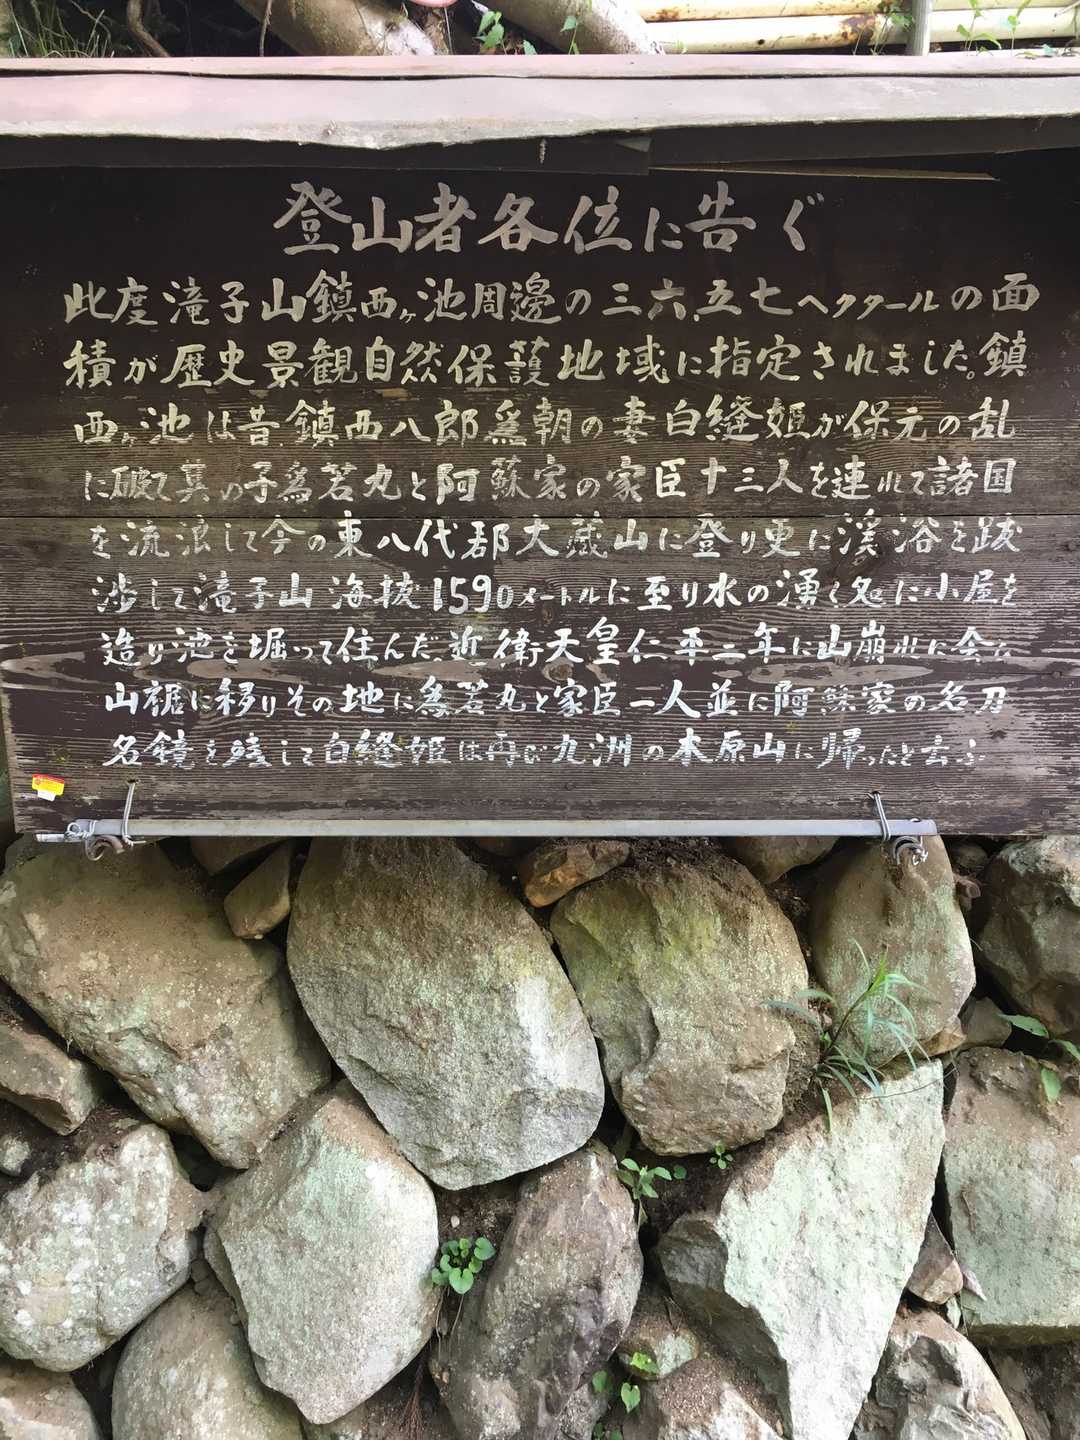 登山者各位に告ぐ
此度滝子山鎮西ヶ池周邊の三六.五七ヘクタールの面
積が歴史景観自然保護地域に指定されました。鎮
西ヶ池は昔鎮西八郎爲朝の妻白縫姫が保元の乱
に破て其の子爲若丸と阿蘇家の家臣十三人を連れて諸国
を流浪して今の東八代郡大蔵山に登り更に渓谷を跋
渉して滝子山海抜1590メートルに至り水の湧く処に小屋を
造り池を堀って住んだ.近衛天皇仁平二年に山崩れに会い
山裾に移りその地に爲若丸と家臣一人並に阿蘇家の名刀
名鏡を残して白縫姫は再び九洲の本原山に帰ったと云ふ